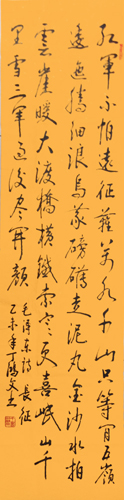 红军不怕远征难万水千山只等闲五岭
逶迤腾细浪乌蒙磅礴走泥丸金沙水拍
云崖暖大渡桥横铁索寒更喜岷山千
里雪三军过后尽开颜
毛泽东诗长征
乙未年